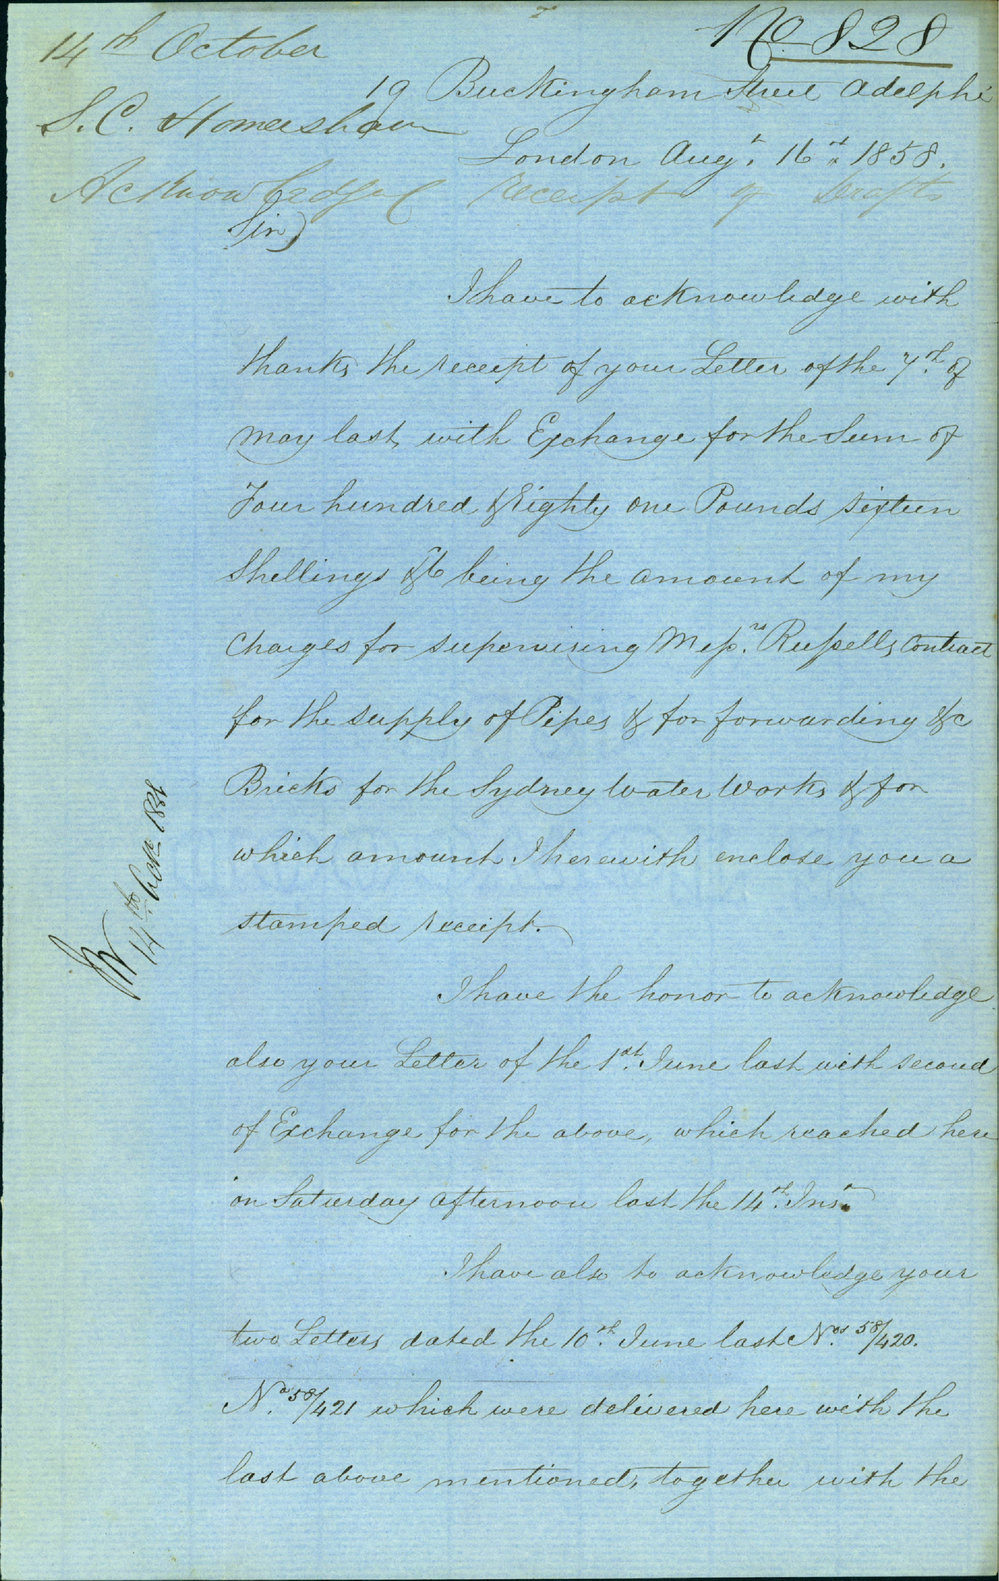 No 828
14th October
19 Buckingham Street Adelphi
S. C. Homersham
London Augt. 16th 1858.
Acknowledges receipt of Drafts
Sir,
I have to acknowledge with
thanks the receipt of your Letter of the 7th. of
May last, with Exchange for the Sum of
Four hundred & Eighty one Pounds sixteen
Shellings & 6 being the amount of my
Charges for supervising Messrs. Russells, Contract
for the supply of Pipes, & for forwarding &c
Bricks for the Sydney Water Works, & for
which amount I herewith enclose you a
stamped receipt.
I have the honor to acknowledge
also your Letter of the 1st. June last with second
of Exchange for the above, which reached here
on Saturday afternoon last the 14th. Inst.
I have also to acknowledge your
two Letters, dated the 10th. June last Nos. 58/420.
No. 58/421 which were delivered here with the
last above mentioned, together with the
14th. Octr. 1858